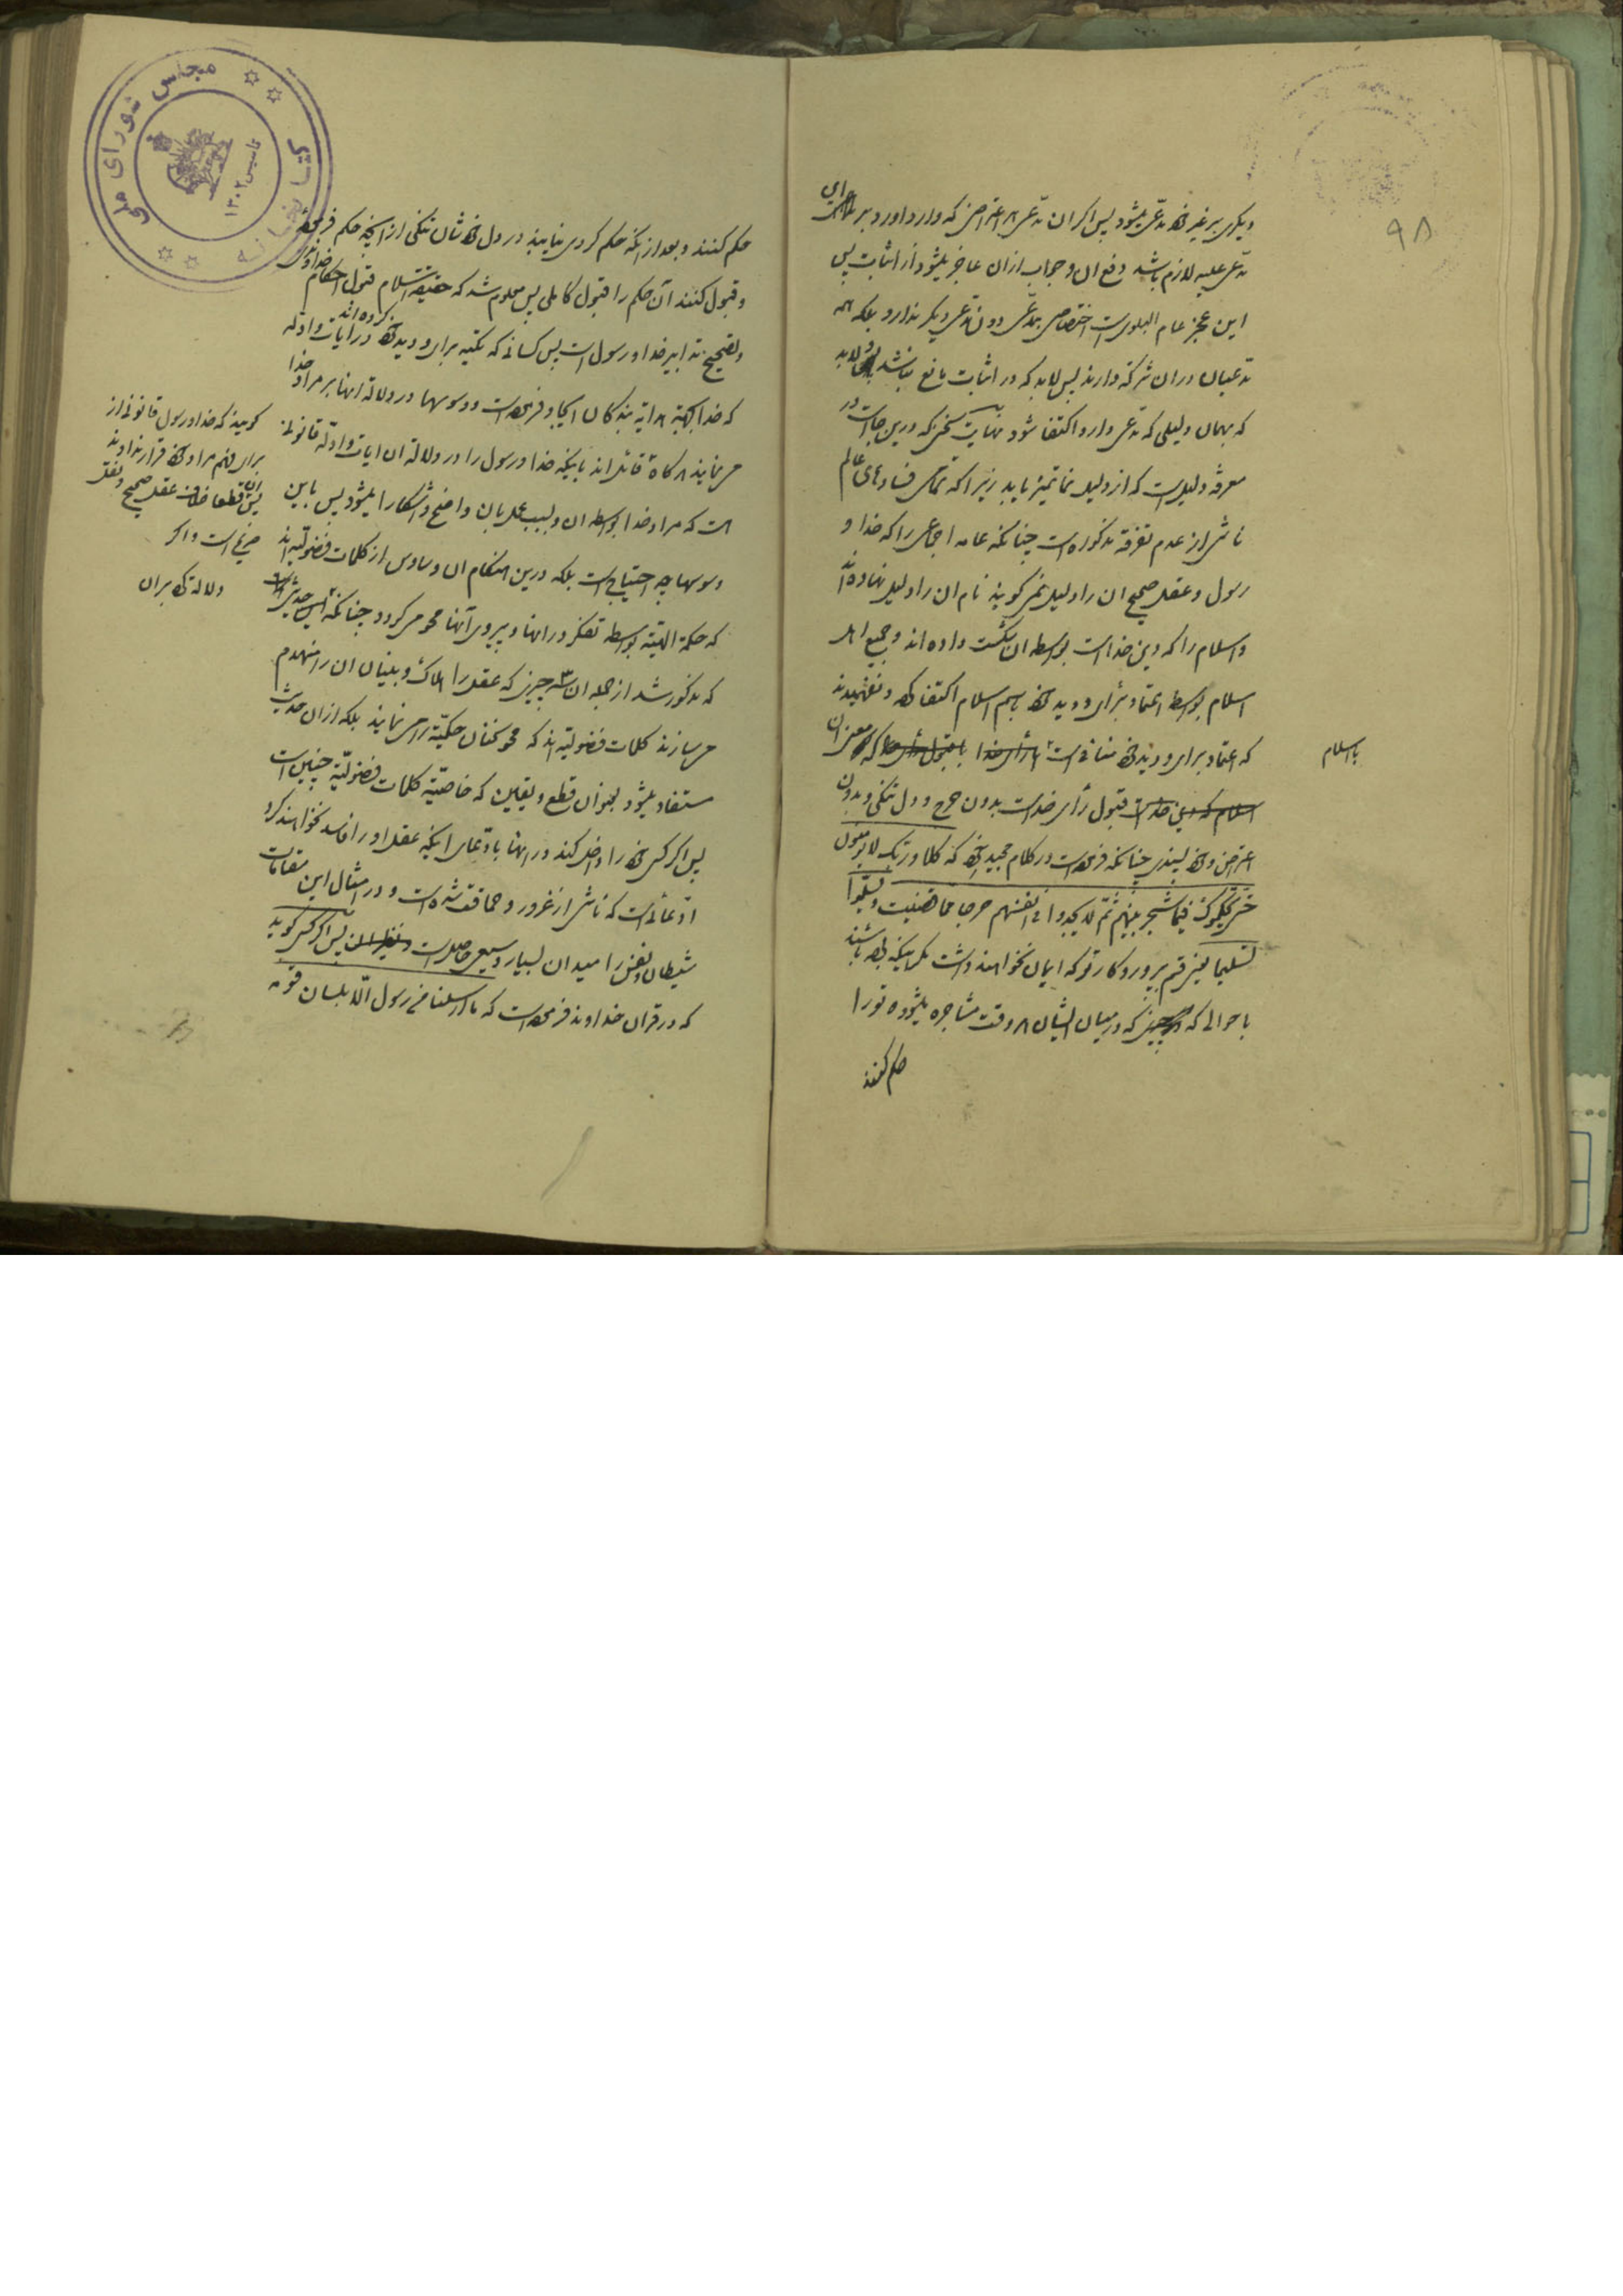 ۹۸
دیگری بر غیر خود مدعی میشود پس اگر ان مدعی هر اعتراضی که وارد اورد بر
مدعی علیه لازم باشد دفع ان و جواب ازان عاجز میشود از اثبات پس
این عجز عام البلوی است اختصاصی بمدعی دون مدعی دیگر ندارد بلکه همه
مدعیان دران شرکة دارند پس لابد که در اثبات مانع نباشد و لابد
که بهمان دلیلی که مدعی دارد اکتفا شود نهایت سخن که درین جا است در
معرفة دلیل است که از دلیل نما تمیز یابد زیرا که تمامی فسادهای عالم
ناشی از عدم تفرقه مذکوره است چنانکه عامه اجماعی را که خدا و
رسول و عقل صحیح ان را دلیل نمی گویند نام ان را دلیل نهاده اند
و اسلام را که دین خدا است بواسطه ان شکست داده اند و جمیع اهل
اسلام بواسطه اعتماد برأی و دید خود باسم اسلام اکتفا کرده و نفهمیدند
که اعتماد برای و دید خود منافی است با اسلام که معنی ان
قبول رأی خداست بدون حرج و دل تنگی و بدون
اعتراض و خود پسندی چنانکه فرموده است در کلام مجید خود که فلا و ربک لا یؤمنون
حتی یحکموک فیما شجر بینهم ثم لا یجدوا فی انفسهم حرجا مما قضیت و یسلموا
تسلیما یعنی قسم بپروردکار تو که ایمان نخواهند داشت مگر اینکه بوده باشند
با حوالی که در چیزی که در میان ایشان هر وقت مشاجره میشود تو را
حکم کنند
مجلس شورای ملی
کتابخانه
تاسیس ۱۳۰۲
حکم کنند و بعد از انکه حکم کردی نیابند در دل خودشان تنگی از انچه حکم فرموده
و قبول کنند آن حکم را قبول کاملی پس معلوم شد که حقیقة اسلام قبول احکام خداوندی
و تصحیح تدابیر خدا و رسول است پس کسانی که تکیه برای و دید خود کرده اند در ایات و ادله
که خدا بجهة هدایة بندگان ایجاد فرموده است و وسوسها در دلالة انها بر مراد خدا
می نمایند هر گاه قائل اند باینکه خدا و رسول را در دلالة ان ایات و ادله قانونی
است که مراد خدا بواسطه ان و بسبب عمل بان واضح و اشکارا میشود پس باین
وسوسها چه احتیاجی است بلکه درین هنگام ان وساوس از کلمات فضولیه اند
که حکمة الهیّه بواسطه تفکر در انها و پیروی آنها محو می گردد چنانکه
که مذکور شد از جمله ان سه چیزی که عقل را هلاک و بنیان ان را منهدم
می سازند کلمات فضولیه اند که محو کننان حکمة را می نمایند بلکه ازان حدیث
مستفاد میشود بعنوان قطع و یقین که خاصیّة کلمات فضولیّة چنین است
پس اگر کسی خود را داخل کند در انها با دعای اینکه عقل او را فاسد نخواهند کرد
ادعائی است که ناشی از غرور و حماقت شده است و در امثال این مقامات
شیطان و نفس را میدان بسیار وسیعی حاصل است پس اگر کسی گوید
که در قران خداوند فرموده است که ما ارسلنا من رسول الّا بلسان قومه
گویند که خدا و رسول قانونی از
برای فهم مراد خود قرار نداده اند
پس ان قطعا خلاف عقل صحیح و نقل
صریح است و اگر